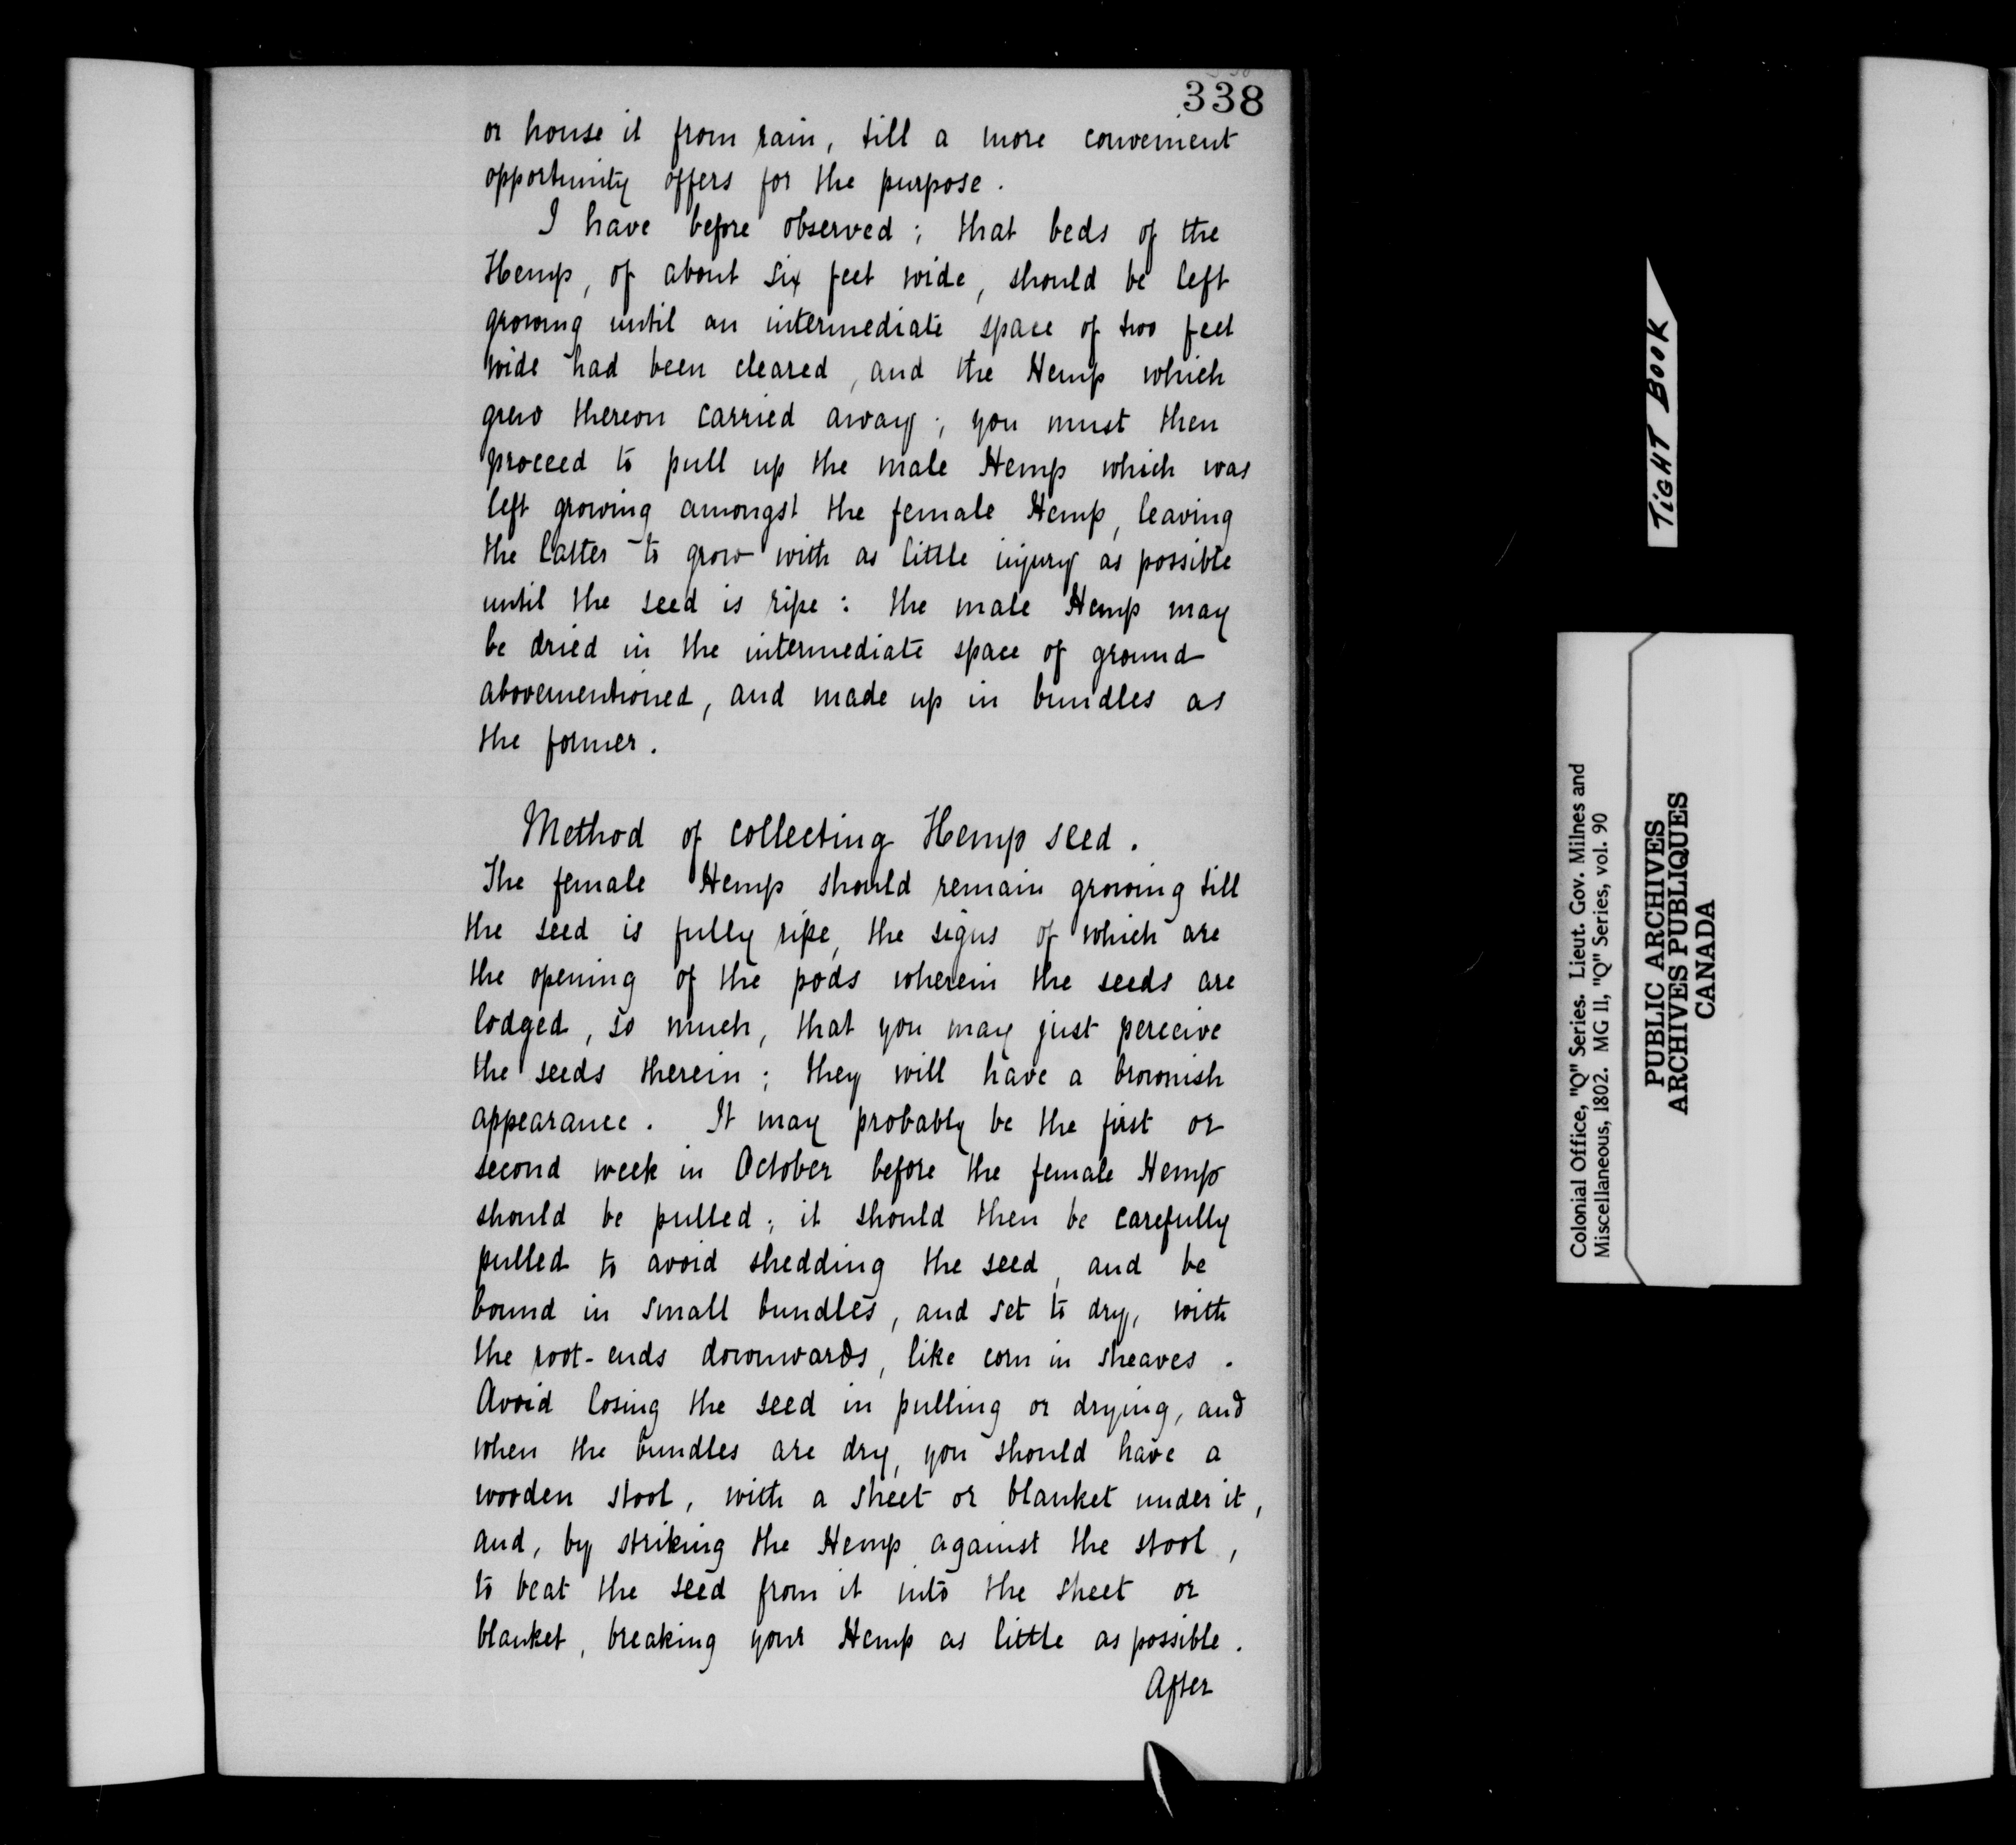 338
or house it from rain, till a more convenient
opportunity offers for the purpose.
I have before observed; that beds of the
Hemp, of about six feet wide, should be left
growing until an intermediate space of two feet
wide had been cleared, and the Hemp which
grew thereon carried away; you must then
proceed to pull up the male Hemp which was
left growing amongst the female Hemp, leaving
the latter to grow with as little injury as possible
until the seed is ripe: the male Hemp may
be dried in the intermediate space of ground
abovementioned, and made up in bundles as
the former.
Method of collecting Hemp seed.
The female Hemp should remain growing till
the seed is fully ripe, the signs of which are
the opening of the pods wherein the seeds are
lodged, so much, that you may just perceive
the seeds therein; they will have a brownish
appearance. It may probably be the first or
second week in October before the female Hemp
should be pulled; it should then be carefully
pulled to avoid shedding the seed, and be
bound in small bundles, and set to dry, with
the root-ends downwards, like corn in sheaves.
Avoid losing the seed in pulling or drying, and
when the bundles are dry, you should have a
wooden stool, with a sheet or blanket under it,
and, by striking the Hemp against the stool,
to beat the seed from it into the sheet or
blanket, breaking your Hemp as little as possible.
After
TIGHT BOOK
Colonial Office, "Q" Series. Lieut. Gov. Milnes and
Miscellaneous, 1802. MG 11, "Q" Series, vol. 90
PUBLIC ARCHIVES
ARCHIVES PUBLIQUES
CANADA